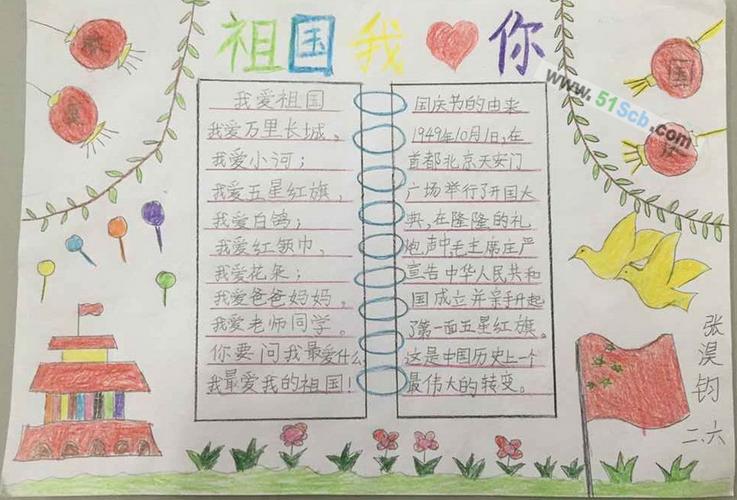 祖国我你
www.51Scb.com
欢
度
国
庆
我爱祖国
我爱万里长城、
我爱小河；
我爱五星红旗，
我爱白鸽；
我爱红领巾，
我爱花朵；
我爱爸爸妈妈。
我爱老师同学。
你要问我最爱什么
我最爱我的祖国！
国庆节的由来
1949年10月1日,在
首都北京天安门
广场举行了开国大
典,在隆隆的礼
炮声中,毛主席庄严
宣告中华人民共和
国成立并亲手升起
了第一面五星红旗。
这是中国历史上一个
最伟大的转变。
张淏钧
二、六